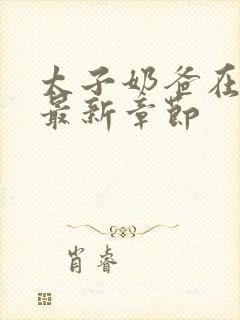 太子奶爸在
最新章节
肖睿